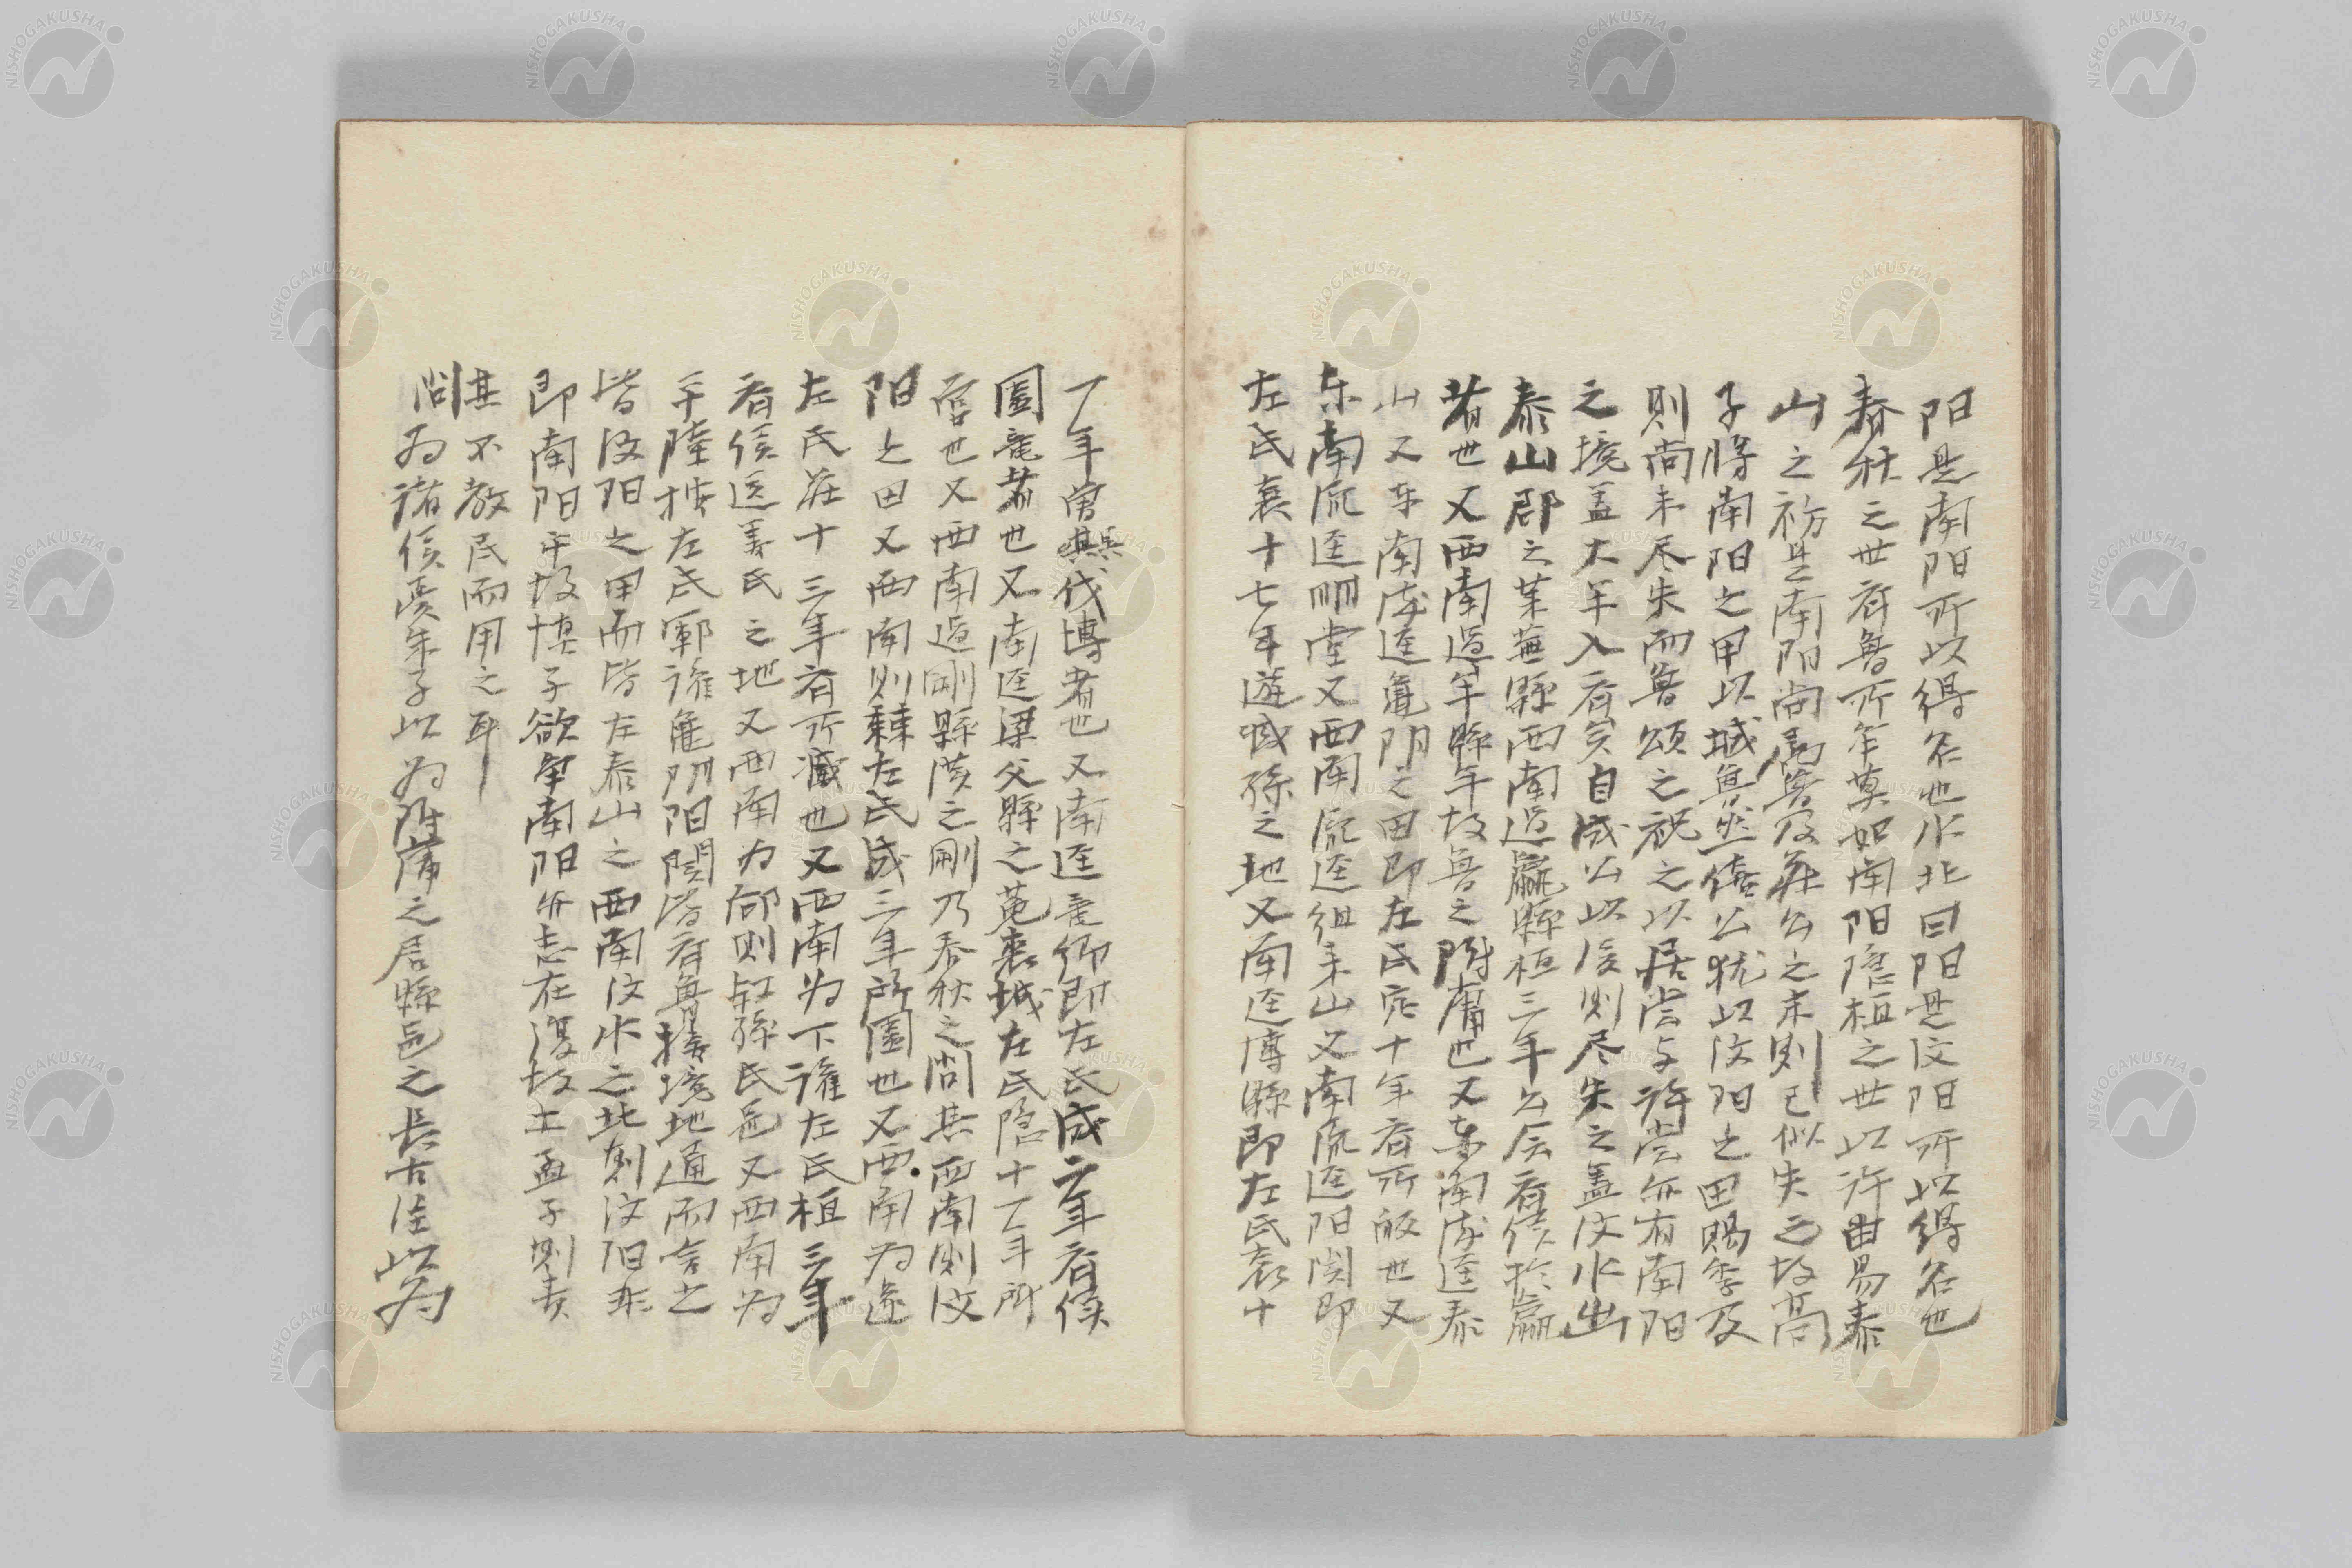 阳是南阳所以得名也水北曰阳是汶阳所以得名也
春秋之世有魯所争莫如南阳隱桓之世以許田易泰
山之祊是南阳尚属魯及莊公之末則已似失之故高
子将南阳之甲以城魯然僖公犹以汶阳之田賜季友
則尚未尽失而魯頌之祝之以居尝与許尝亦有南阳
之境盖大半入齐矣自成公以后則尽失之盖汶水出
泰山郡之莱蕪縣西南過嬴縣桓三年公会齐侯於嬴
者也又西南過牟縣牟故魯之附庸也又东南流逕泰
山又东南流逕龟阴之田即左氏定十年齐所敀也又
东南流逕明堂又西南流逕徂来山又南流逕阳関即
左氏襄十七年逆臧孫之地又南逕博縣即左氏哀十
一年會吳伐博者也又南逕龙郷即左氏成二年齐侯
圍龙者也又南逕梁父縣之菟裘城左氏隐十一年所
营也又西南過剛縣漢之剛乃春秋之闡其西南則汶
阳之田又西南則棘左氏成三年所圍也又西南为遂
左氏莊十三年齐所滅也又西南为下讙左氏桓三年
齐侯送姜氏之地又西南为郈則叔孫氏邑又西南为
平陸按左氏鄆讙龟阴阳関皆齐魯接境地通而言之
皆汶阳之田而皆在泰山之西南汶水之北則汶阳非
即南阳乎故慎子欲争南阳亦志在復故土孟子則责
其不教民而用之耳
問为诸侯憂朱子以为附庸之居縣邑之長古注以为